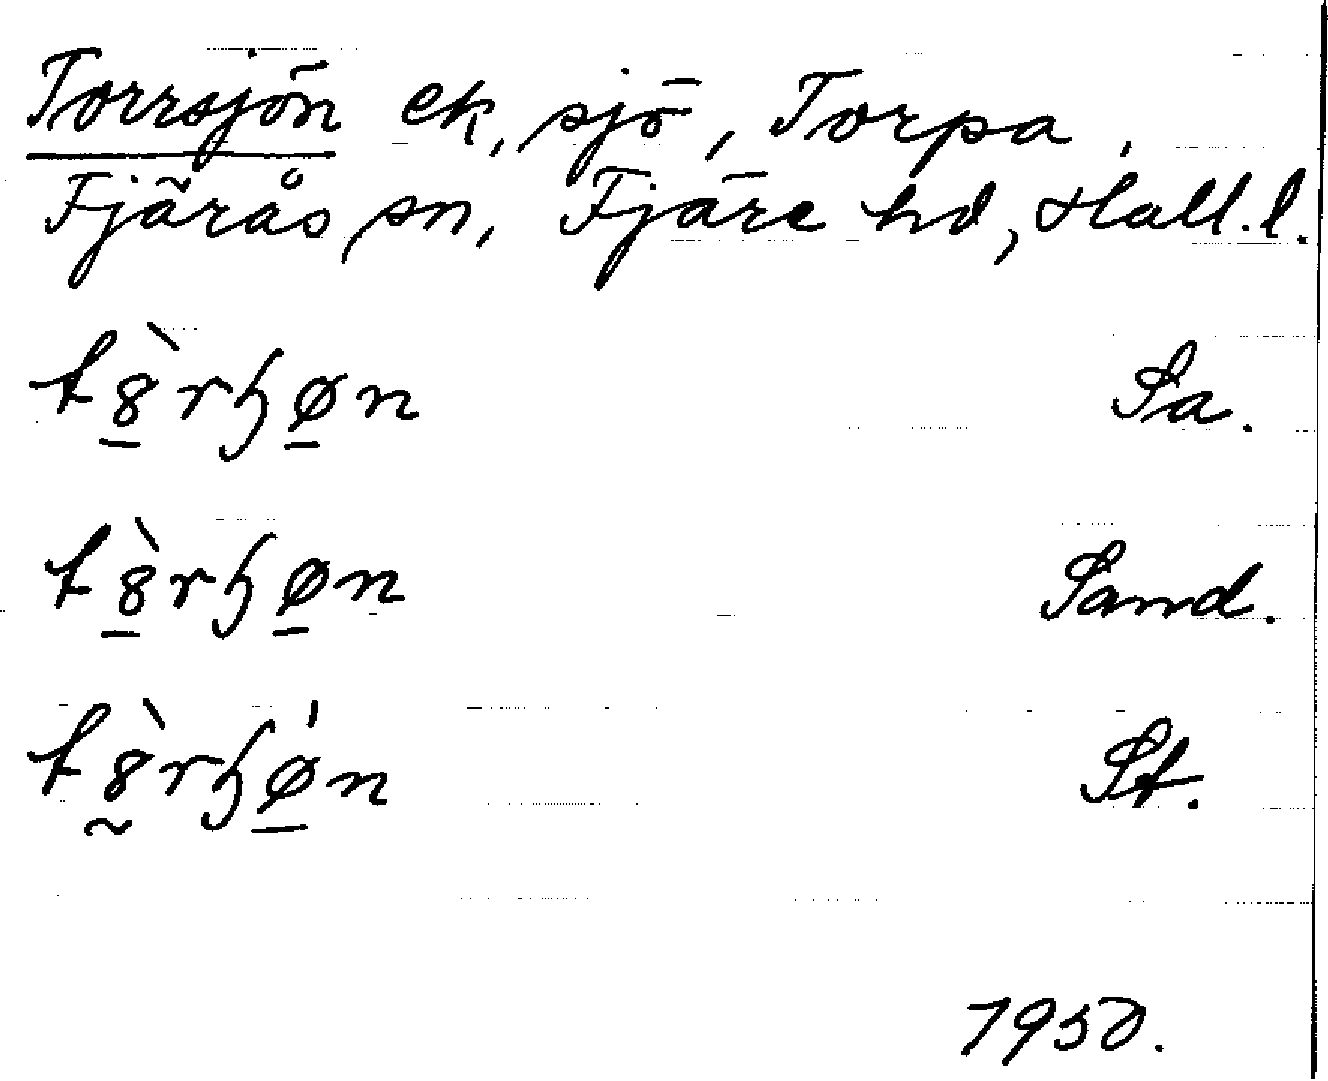 Torrsjön ek, sjö, Torpa,
Fjärås sn, Fjäre hd, Hall. l.
t8̲̀rɧø̲n Sa.
t8̲̀rɧø̲n Sand.
t8̰̀rɧǿ̲n St.
1950.